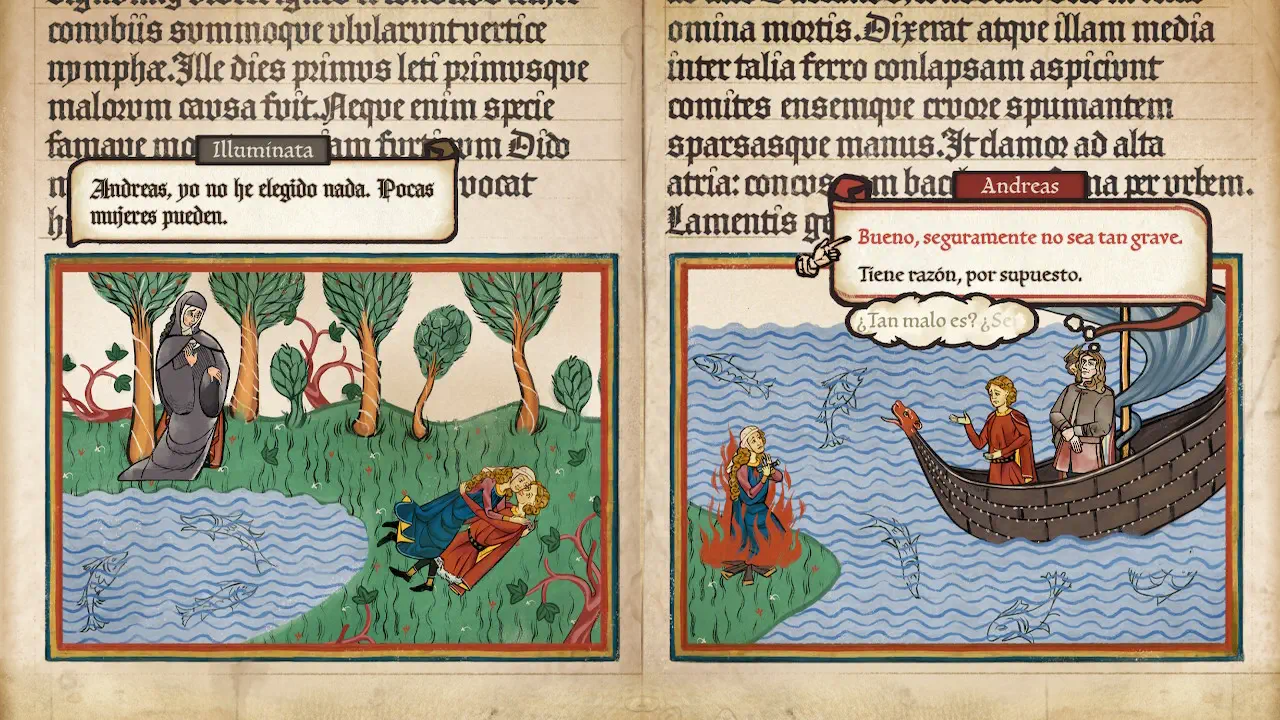 conubiis summoque ulularunt vertice
nymphæ. Ille dies primus leti primusque
malorum causa fuit. Neque enim specie
famave
Dido
vocat
Illuminata
Andreas, yo no he elegido nada. Pocas
mujeres pueden.
omina mortis. Dixerat atque illam media
inter talia ferro conlapsam aspiciunt
comites ensemque cruore spumantem
sparsasque manus. It clamor ad alta
atria: per urbem.
Lamentis
Andreas
Bueno, seguramente no sea tan grave.
Tiene razón, por supuesto.
¿Tan malo es?